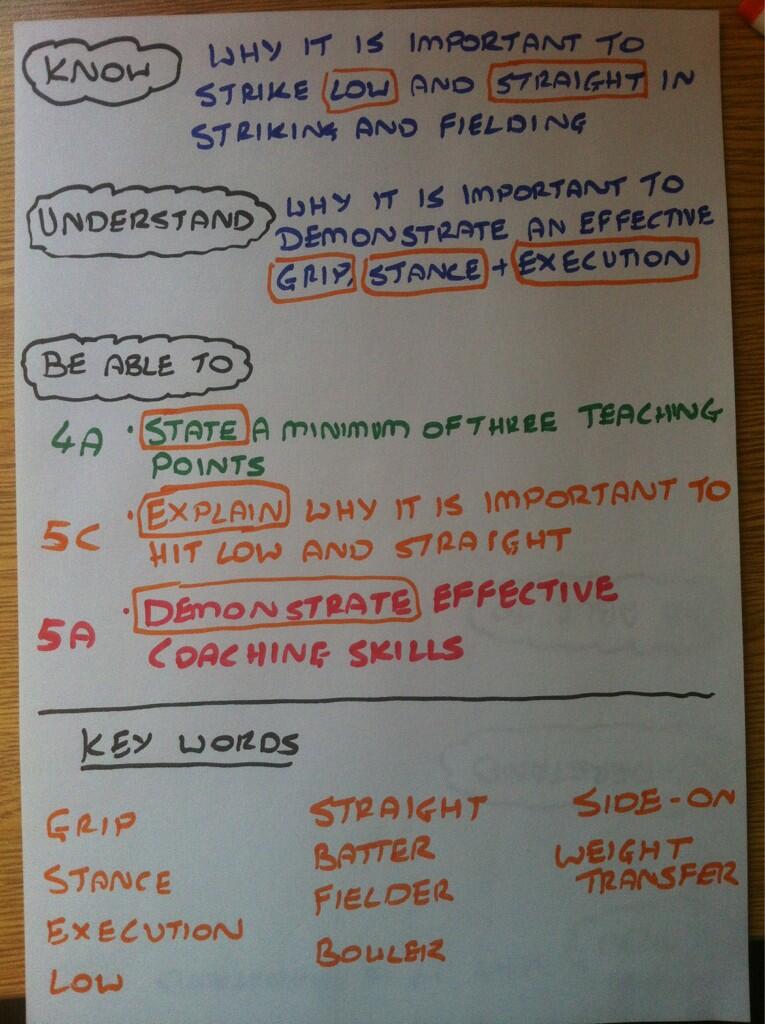 KNOW
WHY IT IS IMPORTANT TO
STRIKE LOW AND STRAIGHT IN
STRIKING AND FIELDING
UNDERSTAND
WHY IT IS IMPORTANT TO
DEMONSTRATE AN EFFECTIVE
GRIP, STANCE + EXECUTION
BE ABLE TO
4A • STATE A MINIMUM OF THREE TEACHING
POINTS
5C • EXPLAIN WHY IT IS IMPORTANT TO
HIT LOW AND STRAIGHT
5A • DEMONSTRATE EFFECTIVE
COACHING SKILLS
KEY WORDS
GRIP
STANCE
EXECUTION
LOW
STRAIGHT
BATTER
FIELDER
BOWLER
SIDE-ON
WEIGHT
TRANSFER